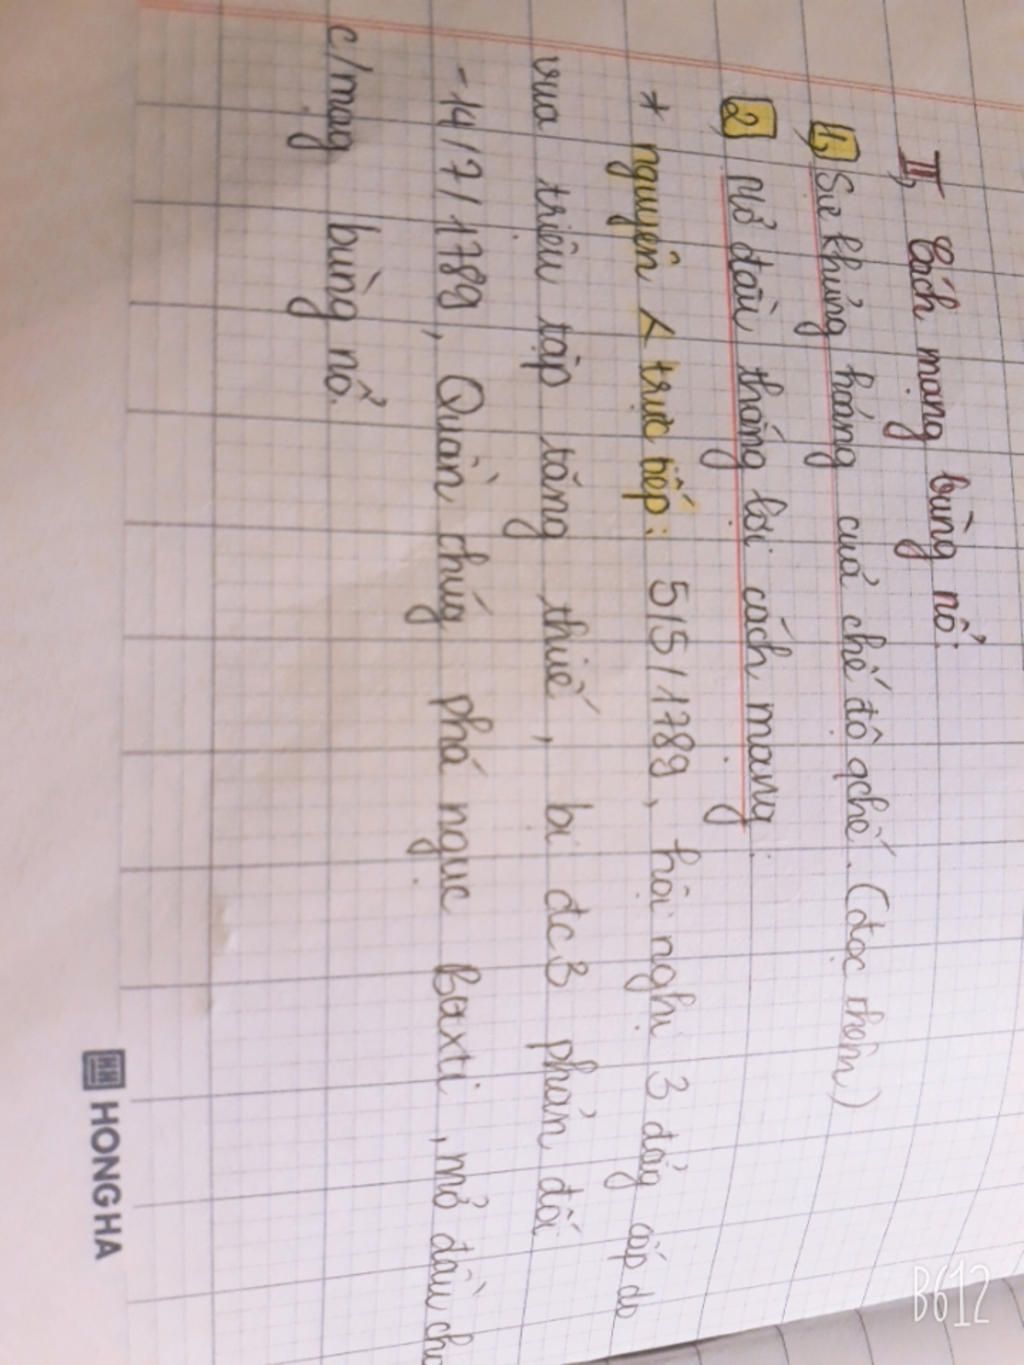 II, Cách mạng bùng nổ.
1, Sự khủng hoảng của chế độ qchế. (đọc thêm)
2, Mở đầu thắng lợi cách mạng.
* nguyên < trực tiếp: 5/5/1789, hội nghị 3 đẳg cấp do
vua triệu tập tăng thuế, bị đc3 phản đối
- 14/7/1789, Quần chúg phá ngục Baxti, mở đầu cho
c/mạg bùng nổ.
HONG HA
B612